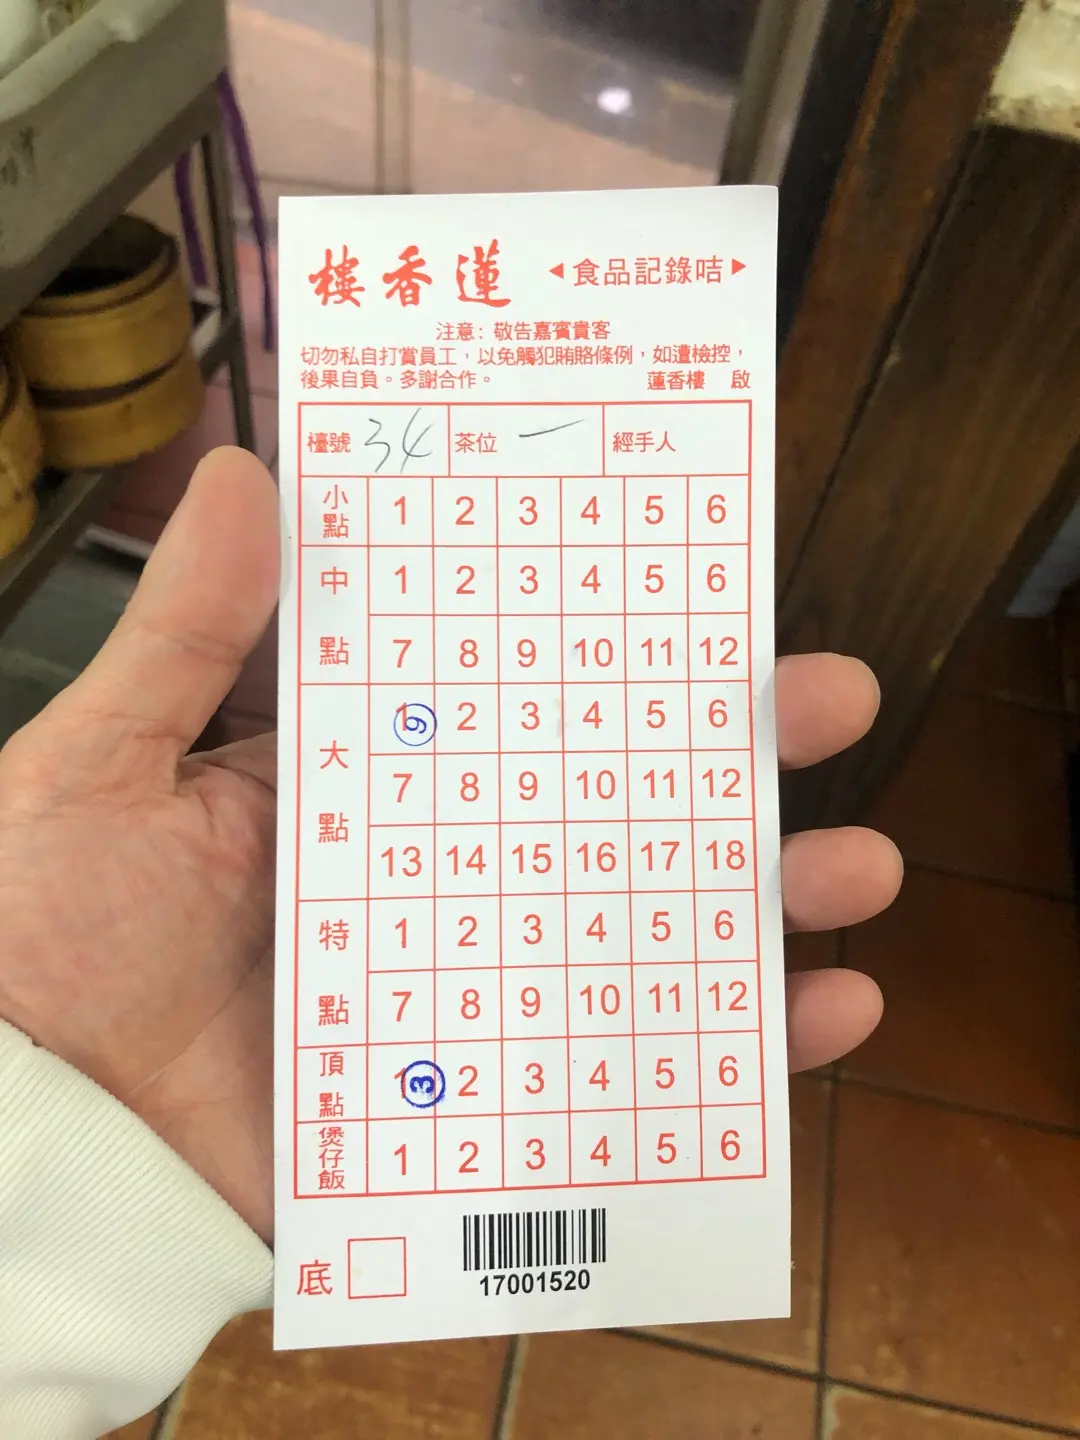 樓香蓮 ◀食品記錄咭▶
注意：敬告嘉賓貴客
切勿私自打賞員工，以免觸犯賄賂條例，如遭檢控，
後果自負。多謝合作。 蓮香樓 啟
檯號 34 茶位 一 經手人
小點 1 2 3 4 5 6
中點 1 2 3 4 5 6
7 8 9 10 11 12
大點 1 ⑨ 2 3 4 5 6
7 8 9 10 11 12
13 14 15 16 17 18
特點 1 2 3 4 5 6
7 8 9 10 11 12
頂點 1 ③ 2 3 4 5 6
煲仔飯 1 2 3 4 5 6
底
17001520